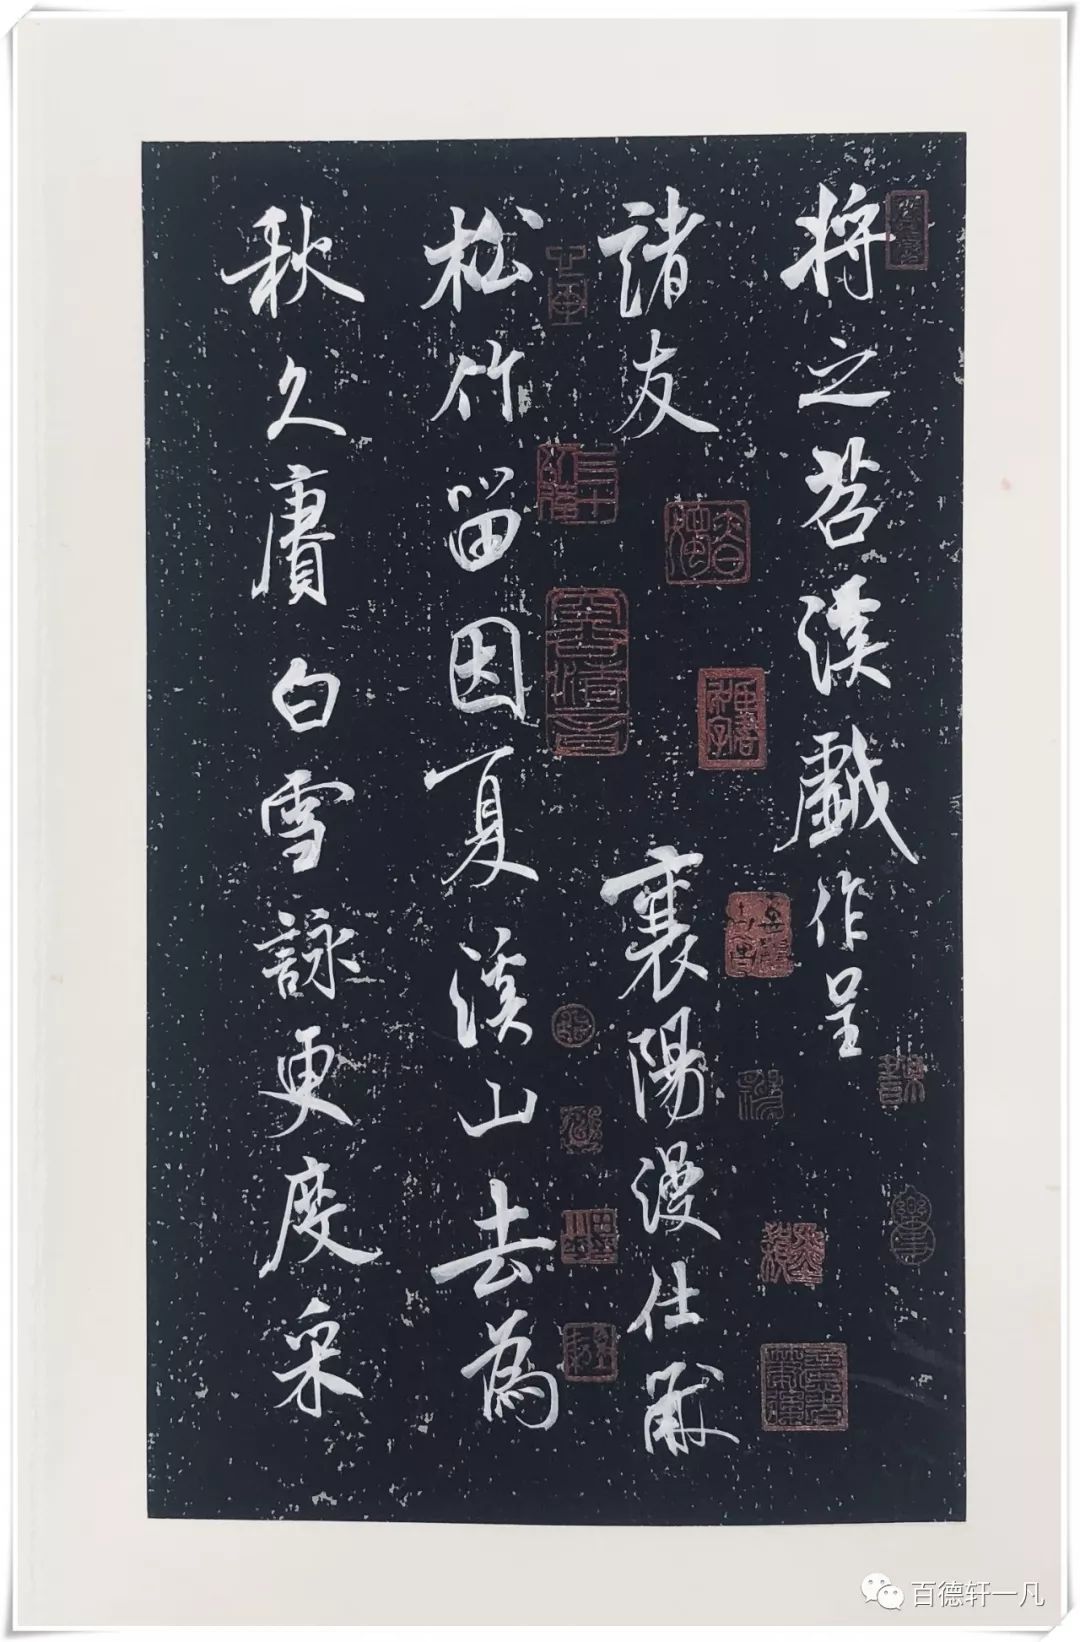 將之苕溪戲作呈
諸友 襄陽漫仕黻
松竹留因夏溪山去為
秋久賡白雪詠更度采
百德轩一凡